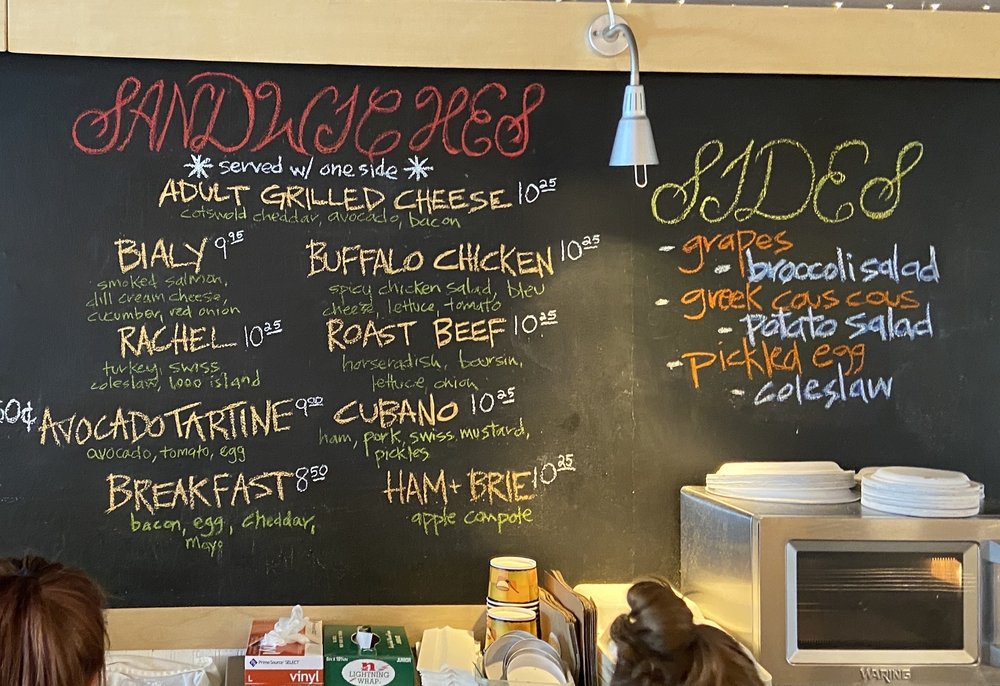 SANDWICHES
* served w/ one side *
ADULT GRILLED CHEESE 10 25
cotswold cheddar, avocado, bacon
BIALY 9 95
smoked salmon,
dill cream cheese,
cucumber, red onion
BUFFALO CHICKEN 10 25
spicy chicken salad, bleu
cheese, lettuce, tomato
RACHEL 10 25
turkey, swiss,
coleslaw, 1,000 island
ROAST BEEF 10 25
horseradish, boursin,
lettuce, onion
50¢
AVOCADO TARTINE 9 00
avocado, tomato, egg
CUBANO 10 25
ham, pork, swiss, mustard,
pickles
BREAKFAST 8 50
bacon, egg, cheddar,
mayo
HAM + BRIE 10 25
apple compote
SIDES
- grapes
- broccoli salad
- greek cous cous
- potato salad
- pickled egg
- coleslaw
Prime Source SELECT
L vinyl
JUNIOR
LIGHTNING
WRAP
WARING